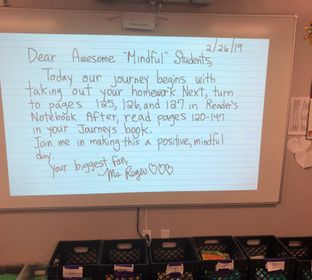 2/26/19
Dear Awesome "Mindful" Students,
Today our journey begins with
taking out your homework. Next, turn
to pages 125, 126, and 127 in Reader's
Notebook. After, read pages 120-147
in your Journeys book.
Join me in making this a positive, mindful
day.
Your biggest fan,
Ms.